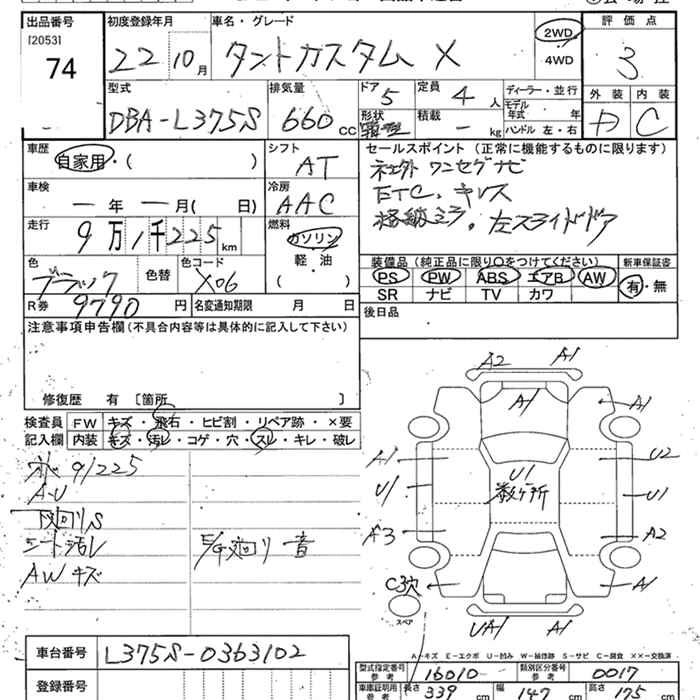 出品番号 初度登録年月 車名・グレード 2WD 評価点
[2053] 74 22 10月 タントカスタム X 4WD 3
型式 排気量 ドア 定員 ディーラー・並行 外装 内装
DBA-L375S 660 CC 5 4人 モデル年式 年 D C
形状 箱型 積載 - kg ハンドル 左・右
車歴 自家用・( ) シフト AT セールスポイント (正常に機能するものに限ります)
社外 ワンセグナビ
車検 一年 一月( 日) 冷房 AAC ETC, キレス
走行 9万1千225km 燃料 ガソリン 左スライドドア
軽・油
( )
色 ブラック 色替 色コード X06
装備品 (純正品に限り○をつけてください) 新車保証書
PS PW ABS エアB AW 有・無
SR ナビ TV カワ
R券 9790円 名変通知期限 月 日
後日品
注意事項申告欄(不具合内容等は具体的に記入して下さい)
修復歴 有 〔箇所 〕
検査員記入欄 FW キズ・飛石・ヒビ割・リペア跡・×要
内装 キズ・汚レ・コゲ・穴・スレ・キレ・破レ
91225
A-U
下廻りS
シート汚レ
AWキズ
E/G廻り 音
A2 A1
A1 A1
A1 U2
U1 U1 数ヶ所 U1
A3 A2
C3穴 A1
スペア
UA1 A1
A-キズ E-エクボ U-凹み W-補修跡 S-サビ C-腐食 ××-交換済
車台番号 L375S-0363102
登録番号
型式指定番号 参考 16010 類別区分番号 参考 0017
車庫証明用 参考 長さ 339cm 幅 147cm 高さ 175cm